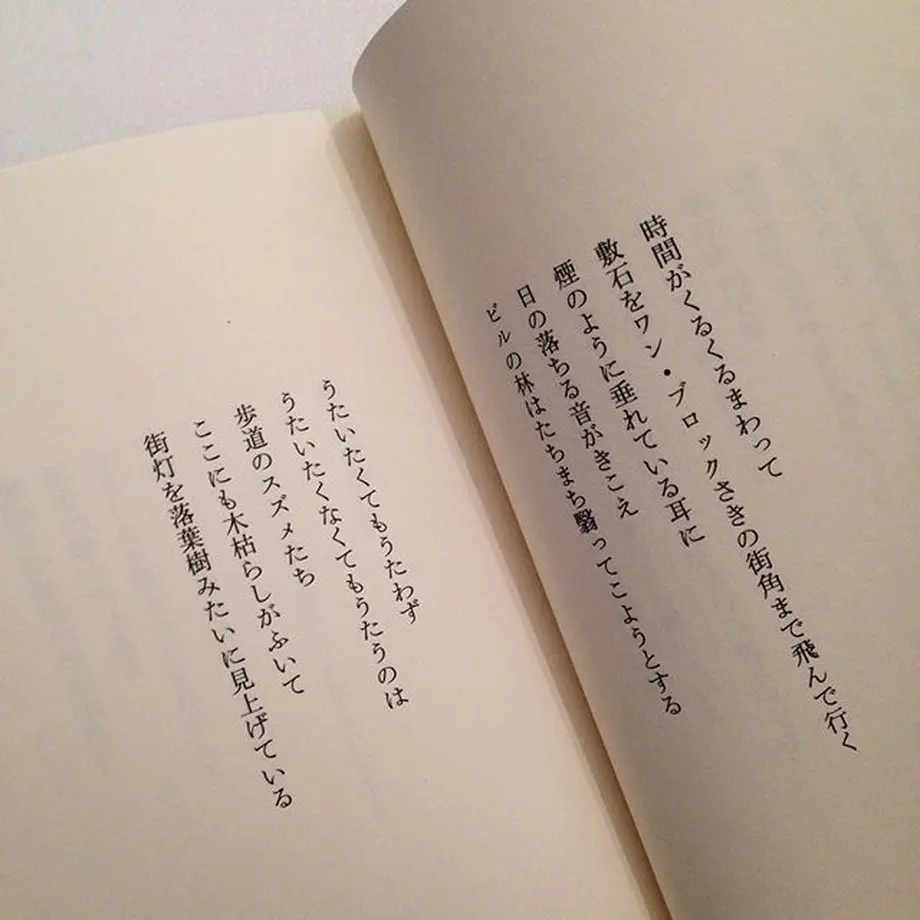 時間がくるくるまわって
敷石をワン・ブロックさきの街角まで飛んで行く
煙のように垂れている耳に
日の落ちる音がきこえ
ビルの林はたちまち翳ってこようとする
うたいたくてもうたわず
うたいたくなくてもうたうのは
歩道のスズメたち
ここにも木枯らしがふいて
街灯を落葉樹みたいに見上げている